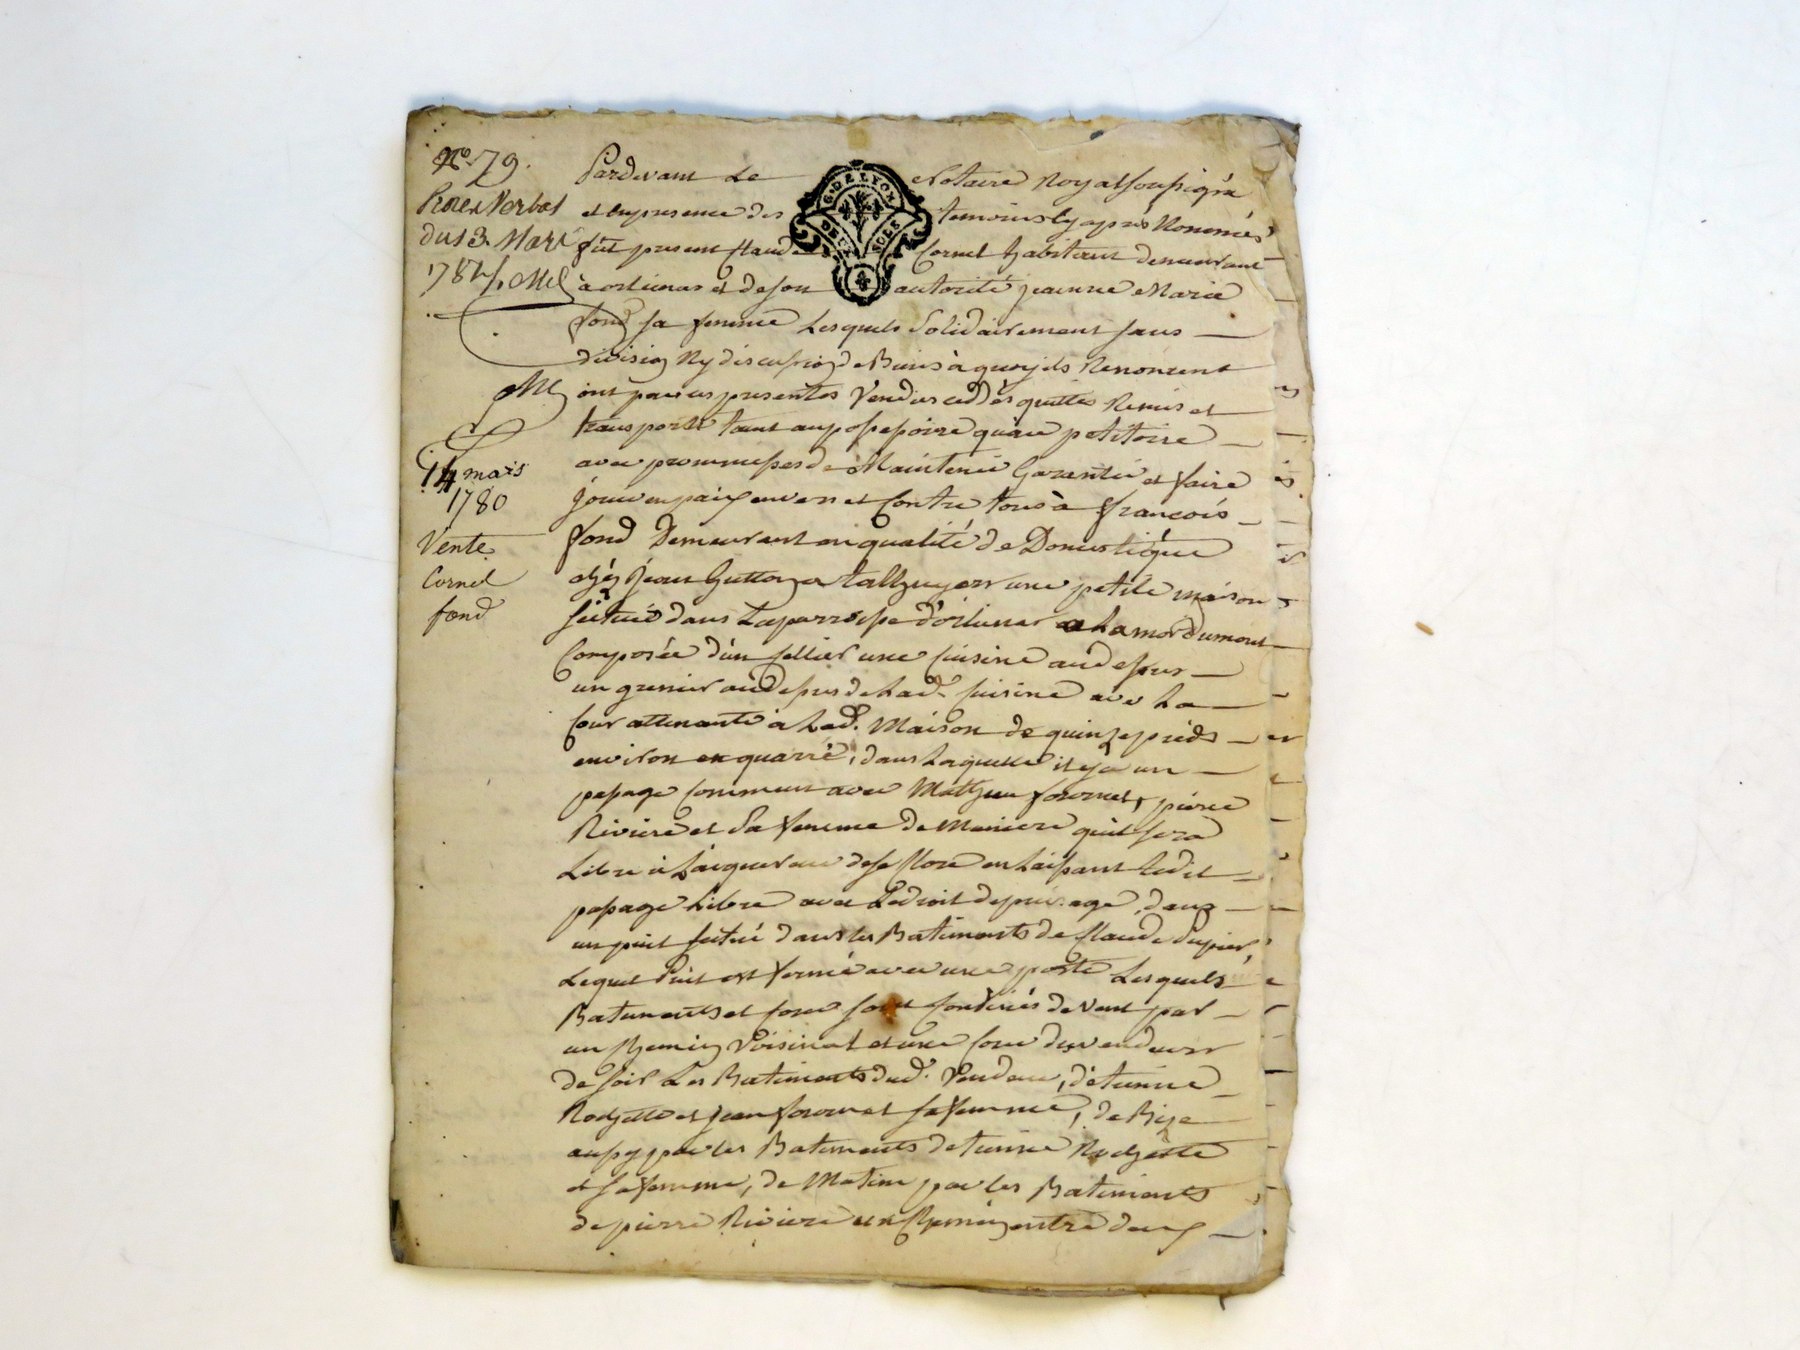 No. 79.
Verbal
du 13. Mars
14 mars
1780
Vente
Cornel
fond
G. DE LYON
DEUX SOLS
Pardevant Le Notaire Royal soussigné
et en presence des temoins cy apres Nommés
fut present Claude Cornel habitant demeurant
à orlienas et de son autorité jeanne Marie
fond sa femme Lesquels Solidairement sans
division Ny discussion de Biens à quoy ils Renoncent
ont par ces presentes Vendus cedés quittés Remis et
transporté tant au possessoire qu'au petitoire
avec promesses de Maintenir Garentir et faire
jouir en paix envers et Contre tous à françois
fond Demeurant en qualité de Domestique
chéz jean à une petite maison
scituée dans La parroisse d'orlienas
Composée d'un sellier une cuisine au dessus
un grenier au dessus de Lad. cuisine avec La
Cour attenante à Lad. Maison de quinze pieds
environ en quarré, dans Laquelle il y a un
passage Commun avec Mathieu pierre
Riviere et Sa femme de Maniere qu'il sera
Libre à de se Clore en Laissant Ledit
passage Libre avec Le droit de puisage, dans
un puit scitué dans les Batiments de Claude
Lequel Puit est fermé avec une porte Lesquels
Batiments et Cour sont de Vent par
un Chemin Voisinal et une Cour des vendeurs
de soir Les Batiments dud. Vendeur, d'etienne
et jean et sa femme, de Bize
aussy par les Batiments d'etienne
et sa femme, de Matin par les Batiments
de pierre Riviere un Chemin entre deux